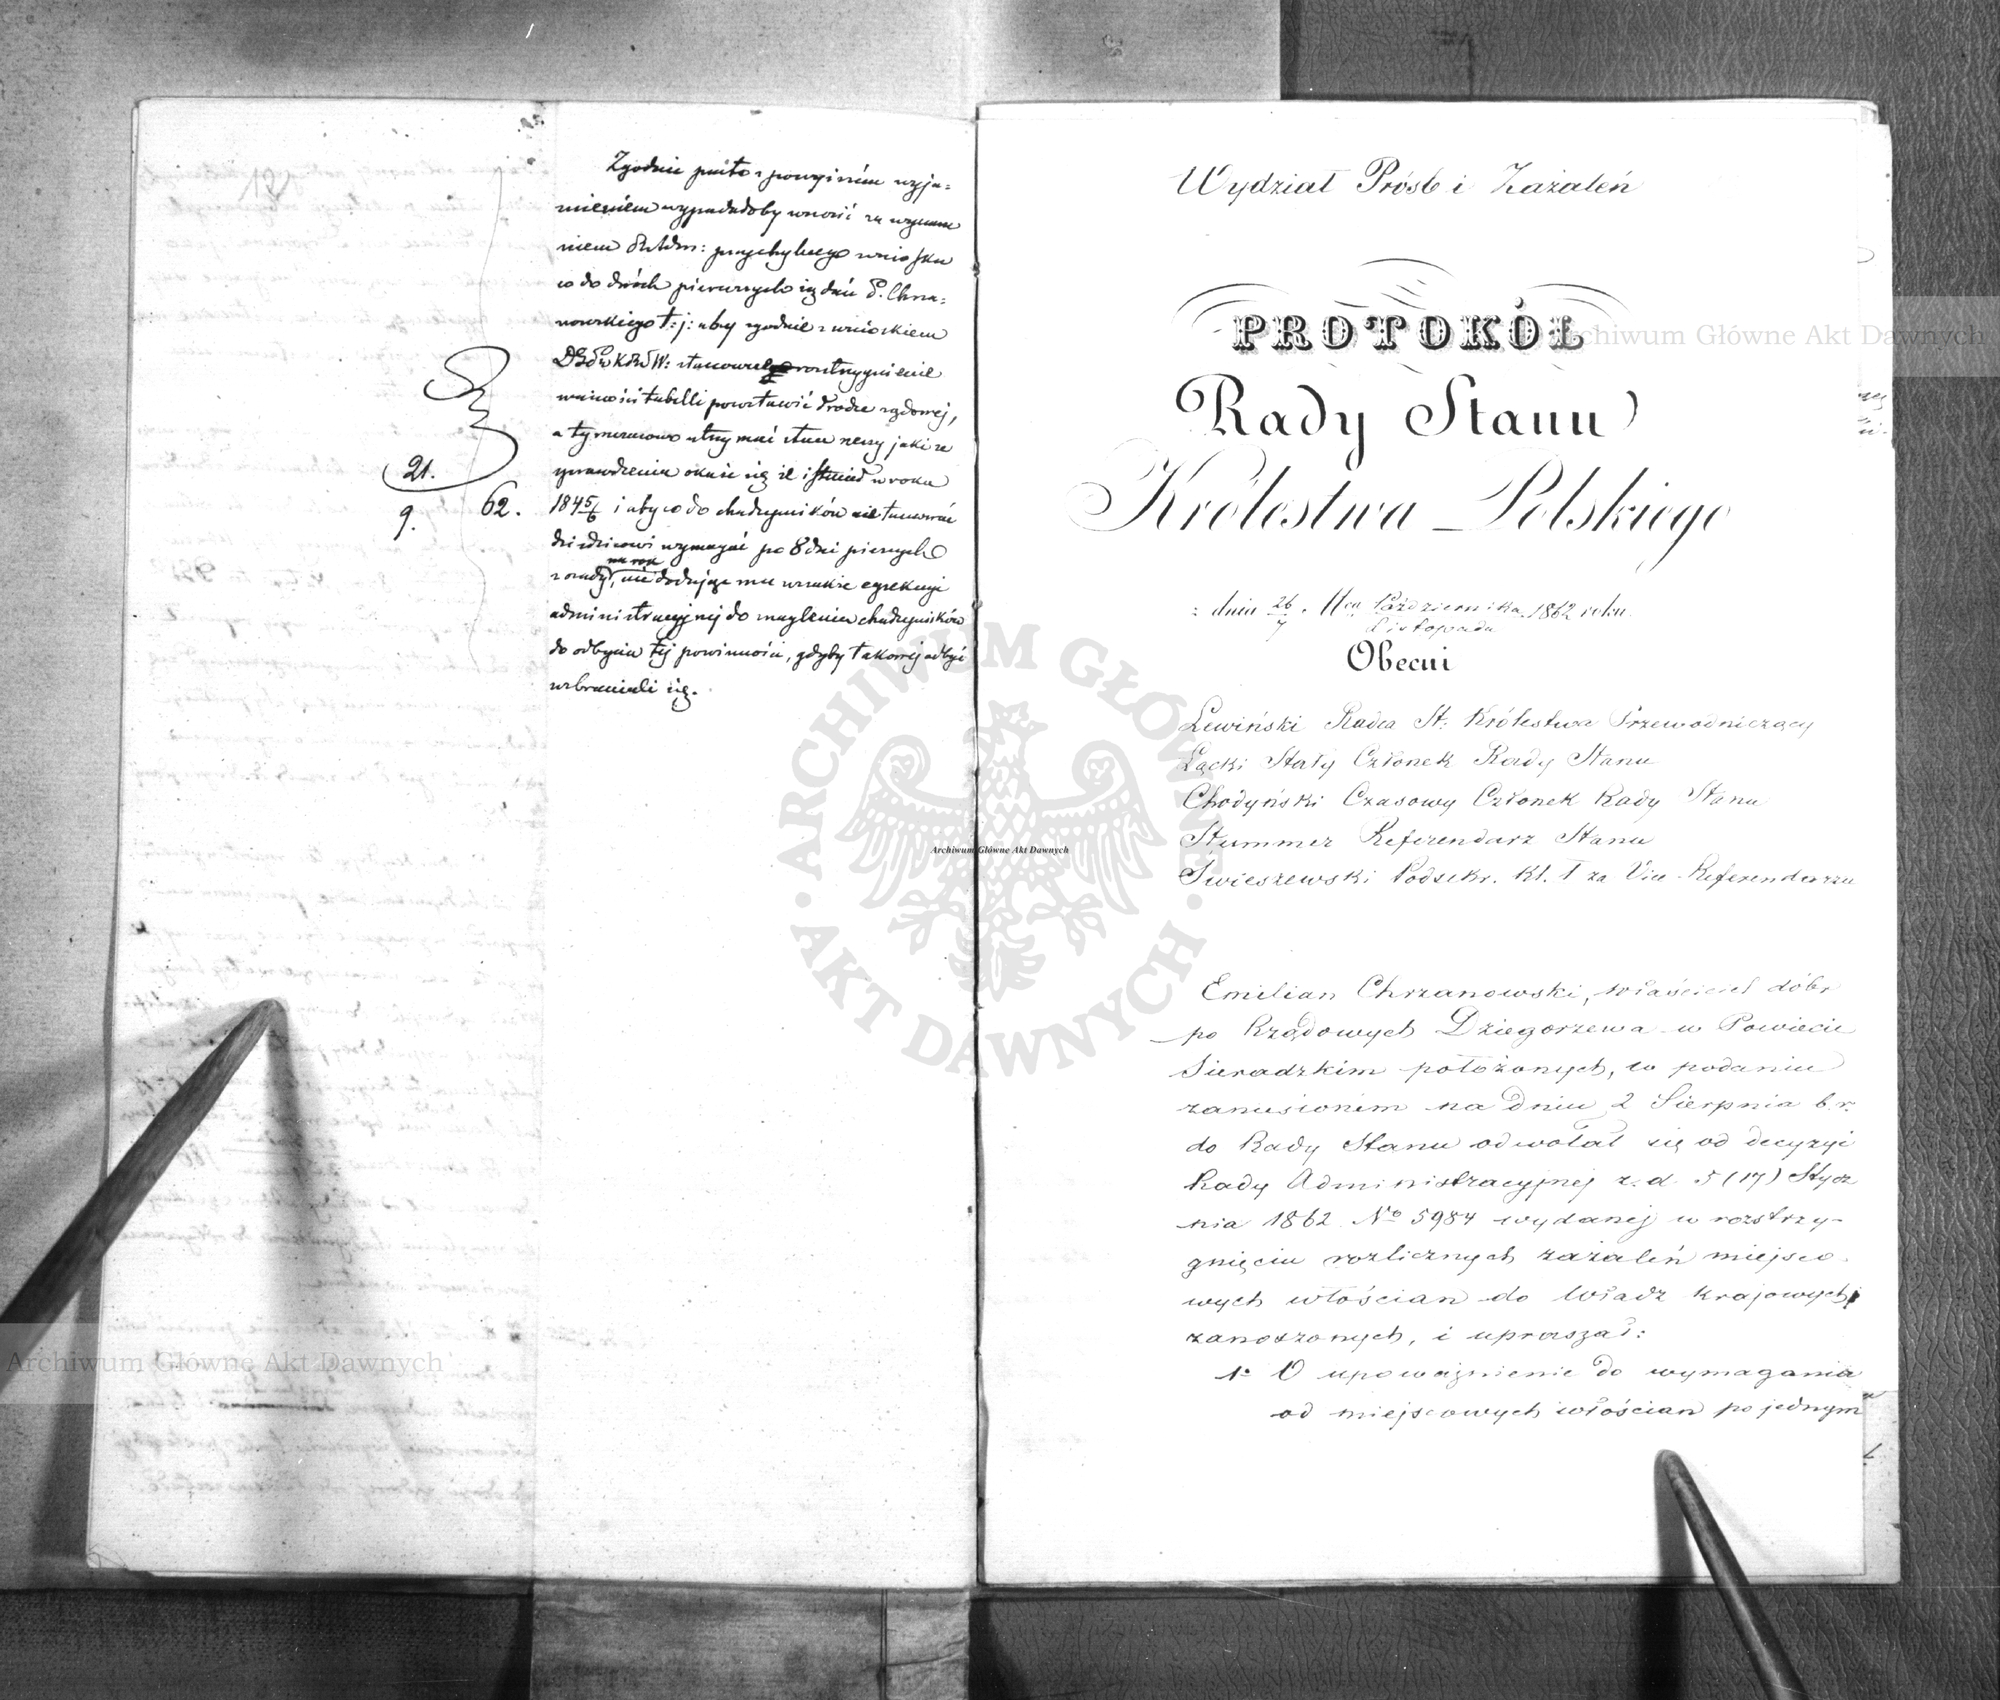 Zgodnie przeto z powyższém wyja-
śnieniem wypadałoby wnosić za wyzna
niem przychylnego wniosku
co do dwóch pierwszych żądań P. Chrza-
nowskiego t: j: aby zgodnie z wnioskiem
rozstrzygnienie
ważności tabelli powstawić drodze sądowej,
a tymczasowo utrzymać stan rzeczy jaki ze
sprawdzenia okaże się że istniał w roku
1845/6 i aby co do chałupników nie tamować
dziedzicowi wymagać po 8 dni pieszych
na rok
z osady, nie dodając mu wszakże egzekucyi
administracyjnej do naglenia chałupników
do odbycia tej powinności, gdyby takowej odbyć
wzbraniali się.
21.
9. 62.
Wydział Próśb i Zażaleń
PROTOKÓŁ
Rady Stanu
Królestwa Polskiego
z dnia 26/7 Października/Listopada 1862 roku
Obecni
Lewiński Radca St: Królestwa Przewodniczący
Łącki Stały Członek Rady Stanu
Chodyński Czasowy Członek Rady Stanu
Stummer Referendarz Stanu
Świeszewski Podsekr. Kl. I za Vice-Referendarza
Emilian Chrzanowski, właściciel dóbr
po Rządowych Dziegorzewa w Powiecie
Sieradzkim położonych, w podaniu
zaniesioném na dniu 2 Sierpnia b.r.
do Rady Stanu odwołał się od decyzyi
Rady Administracyjnej z. d. 5 (17) Stycz
nia 1862 No 5984 wydanej w rozstrzy-
gnięciu rozlicznych zażaleń miejsco-
wych włościan do Władz krajowych
zanoszonych, i upraszał:
1o O upoważnienie do wymagania
od miejscowych włościan po jednym
Archiwum Główne Akt Dawnych
Archiwum Główne Akt Dawnych
Archiwum Główne Akt Dawnych
ARCHIWUM GŁÓWNE AKT DAWNYCH